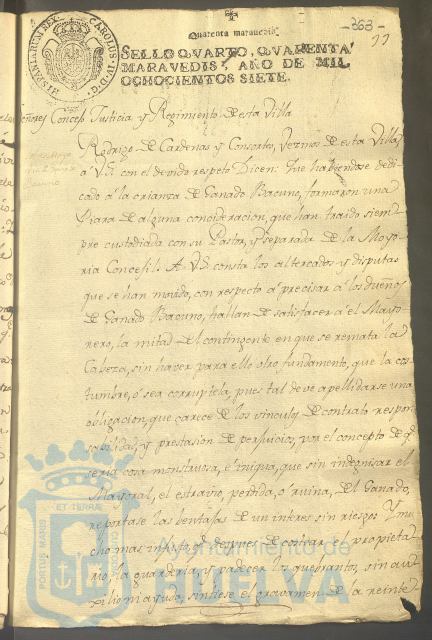 Quarenta maravedis
-363-
HISPANIARUM REX. CAROLUS IV D.G.
SELLO QVARTO, QVARENTA
MARAVEDIS, AÑO DE MIL
OCHOCIENTOS SIETE.
Concejo Justicia y Regimiento de esta Villa
Rodrigo de Cardenas y Consortes, Vezinos de esta Villa,
a V.S. con el devido respeto Dicen: Que haviendose dedi
cado a la crianza de Ganado Bacuno, formaron una
Piara de alguna consideracion, que han traido siem-
pre custodiada con su Pastor, y separada de la Mayo-
ria Concejil: A V.S. consta los altercados y disputas
que se han movido, con respecto a precisar a los dueños
de Ganado Bacuno, hallan de satisfacer a el Mayo-
rero, la mitad del contingente en que se remata la
Cabeza, sin haver para ello otro fundamento, que la cos
tumbre, ó sea corruptela, pues tal deve apellidarse una
obligacion, que carece de los vinculos de contrato respon
sabilidad, y prestasion de perjuicios, por el concepto de q.e
seria cosa monstruosa, é iniqua, que sin indegnisar el
Mayoral, el estravio, perdida, ó ruina, del Ganado,
reportase las bentajas de un interes sin riesgo: Y mu
cho mas despues de costear el propieta
rio la guarderia, y padecer los quebrantos, sin au
xilio ni ayuda, sintiese el gravamen de la reinte
PORTUS MARIS ET TERRAE CUSTODIA
Ayuntamiento de
HUELVA